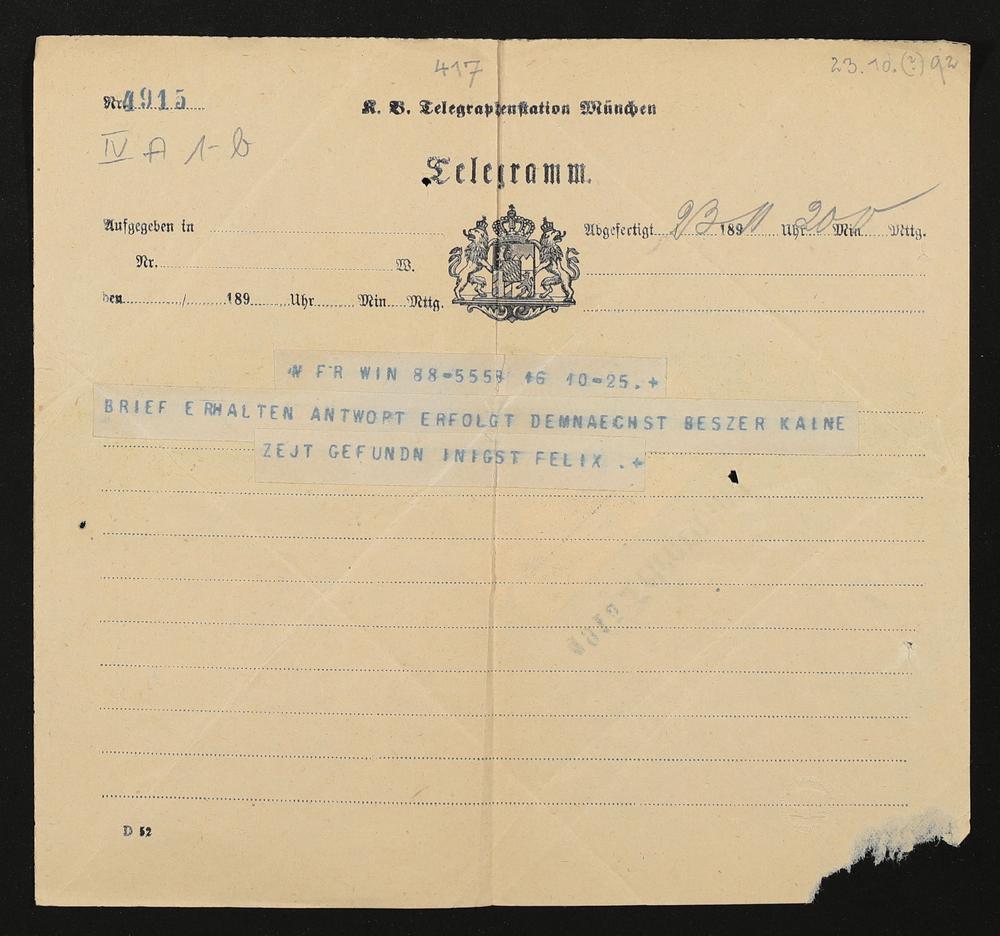 417
23.10.(?) 92
Nr. 4915
K. B. Telegraphenstation München
IV A 1-b
Telegramm.
Aufgegeben in
Abgefertigt 23 189 Uhr 20 Min Mttg.
Nr. W.
den / 189 Uhr Min Mttg.
FR WIN 88=555 16 10=25.+
BRIEF ERHALTEN ANTWORT ERFOLGT DEMNAECHST BESZER KAINE
ZEJT GEFUNDN INIGST FELIX .+
D 52